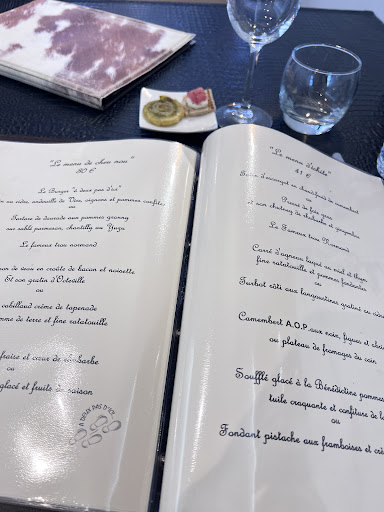 "Le menu de chez nous"
30 €
Le Burger "à deux pas d'ici"
au cidre, andouille de Vire, oignons et pommes confites
ou
Tartare de daurade aux pommes granny
sur sablé parmesan, chantilly au Yuzu
Le fameux trou normand
de veau en croûte de bacon et noisette
Et son gratin d'Octeville
ou
cabillaud crème de tapenade
de terre et fine ratatouille
fraise et cœur de rhubarbe
ou
glacé et fruits de saison
A DEUX PAS D'ICI
"Le menu d'Achète"
41 €
d'escargot en chaud-froid de camembert
ou
Pressé de foie gras
et son chutney de rhubarbe et
Le Fameux trou Normand
Carré d'agneau laqué au miel et thym
fine ratatouille et pommes fondantes
ou
Turbot rôti aux langoustines gratiné au
Camembert A.O.P. aux noix, figues et
ou plateau de fromages du coin
Soufflé glacé à la Bénédictine pommes
tuile craquante et confiture de
ou
Fondant pistache aux framboises et